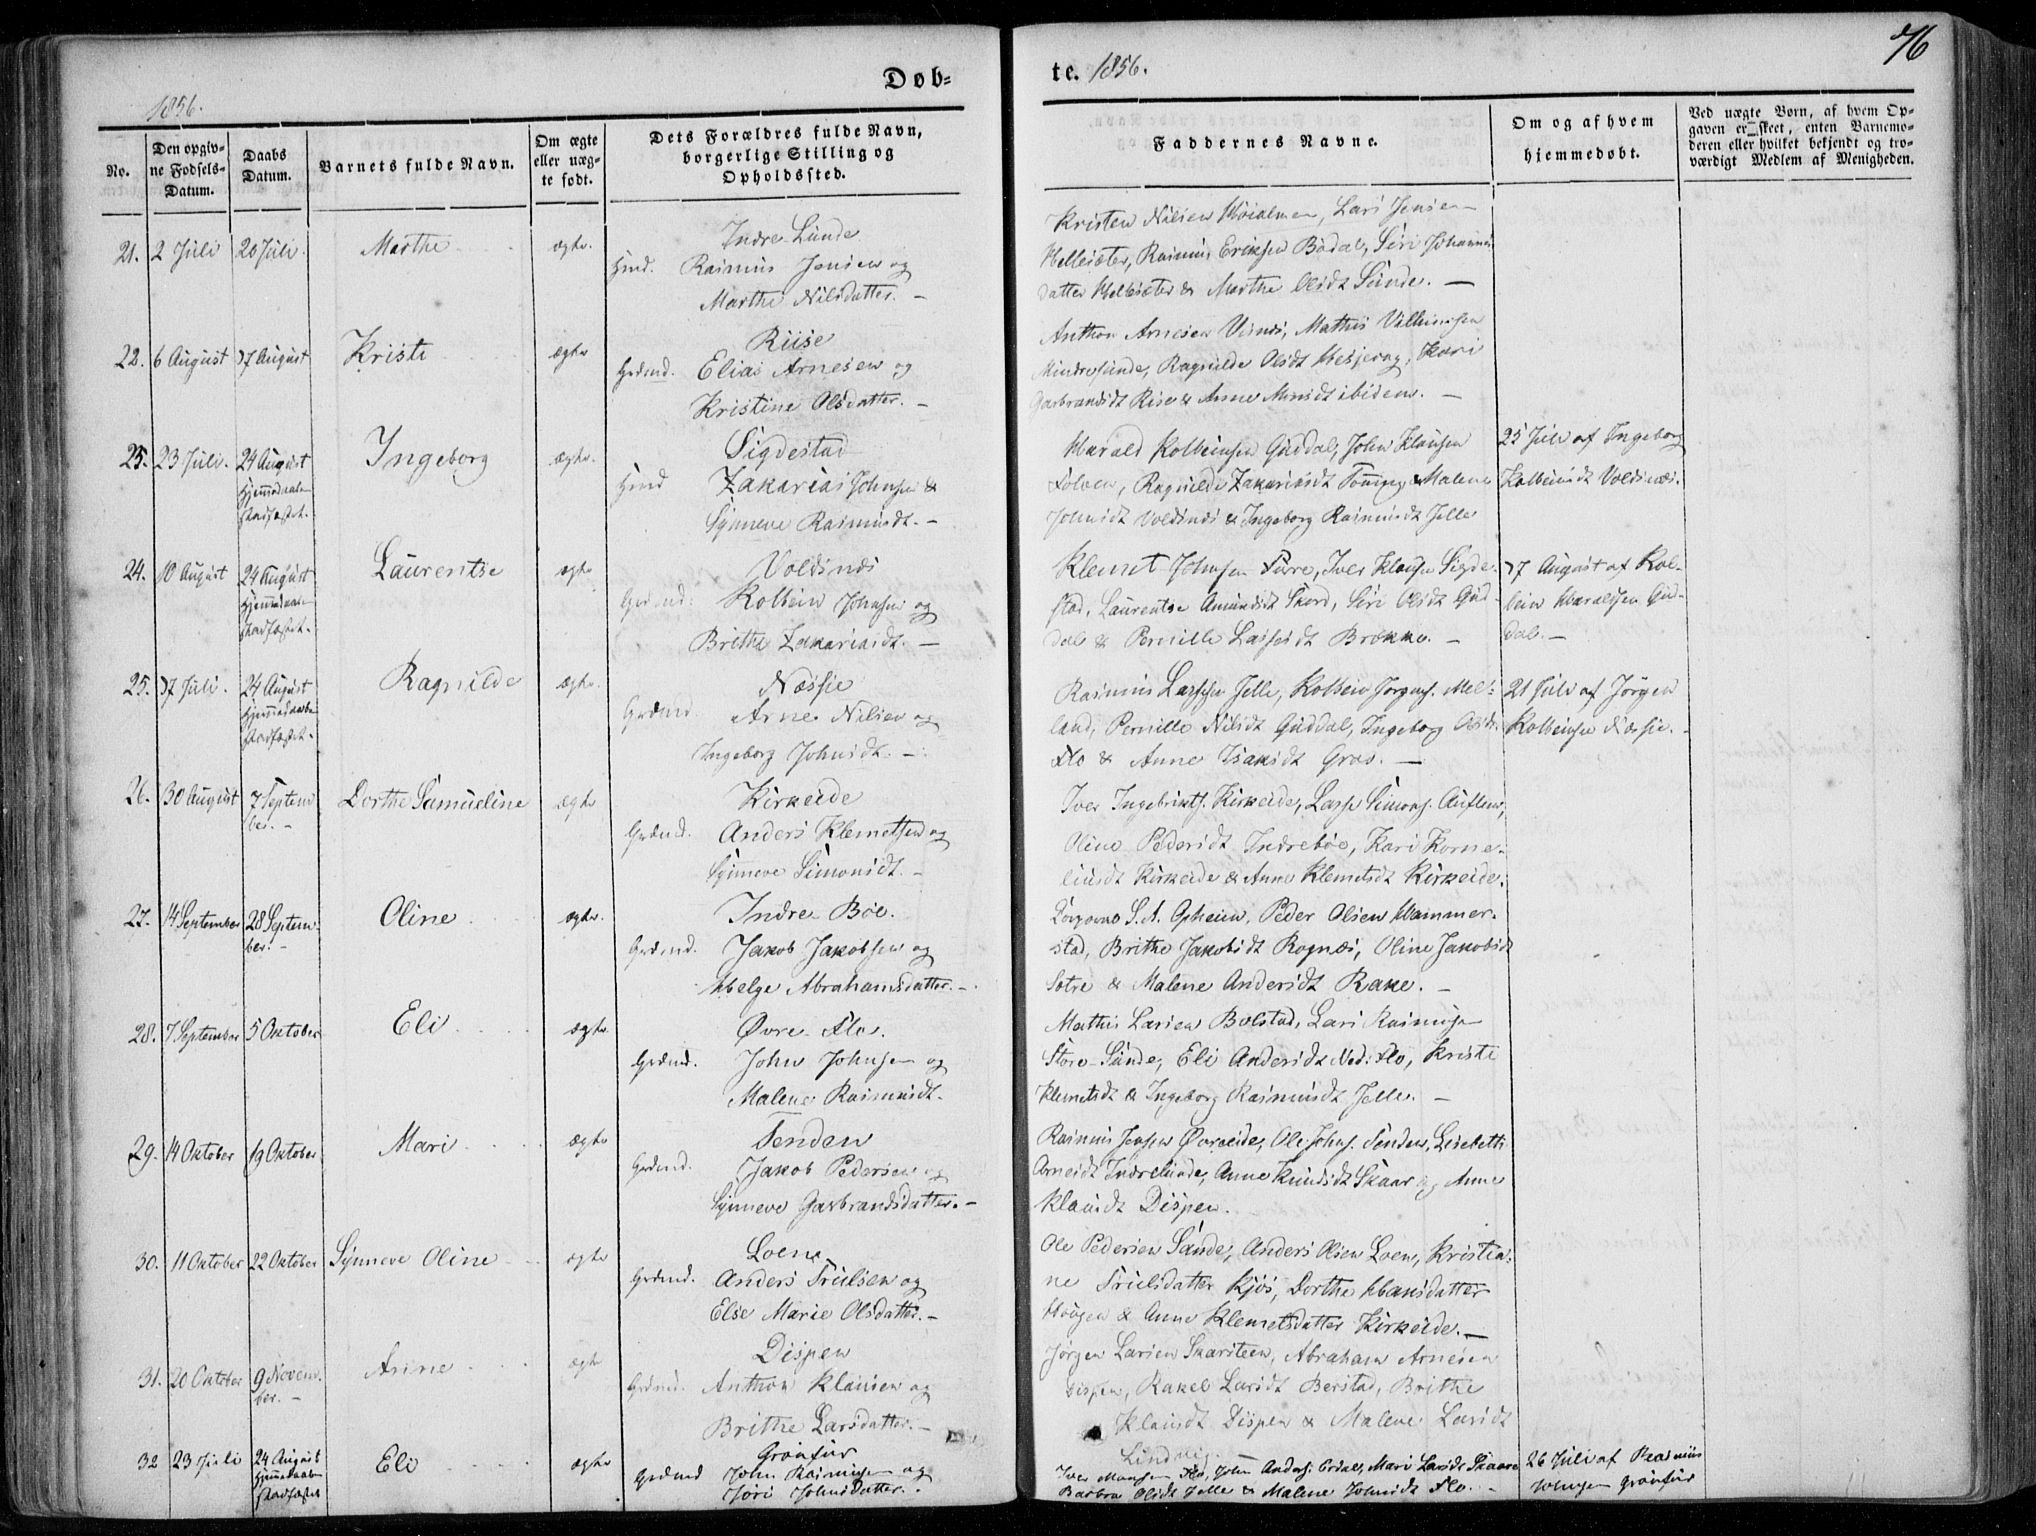 76
Døb-
te. 1856.
1856.
No.
Den opgiv-
ne Fødsels-
Datum.
Daabs
Datum.
Barnets fulde Navn.
Om ægte
eller uæg-
te født.
Dets Forældres fulde Navn,
borgerlige Stilling og
Opholdssted.
Faddernes Navne.
Om og af hvem
hjemmedøbt.
Ved uægte Børn, af hvem Op-
gaven er skeet, enten Barnemo-
deren eller hvilket bekjendt og tro-
værdigt Medlem af Menigheden.
21. 2 Juli 20 Juli. Marthe ægte.
Indre Sunde
Rasmus Jensen og
Marthe Nilsdatter. -
Kristen Nilsen Lars Jensen
Hellesæter, Rasmus Eriksen Bødal, Siri Johannes
datter Hellesæter & Marthe Olsdt Sunde. -
22. 6 August 17 August Kristi ægte
Riise
Grdmd. Elias Arnesen og
Kristine Olsdatter. -
Anthon Arnesen Vinnes, Mathis Villumsen
Mindresunde, Ragnilde Olsdt Hesjevog, Kari
Garbrandsdt Rise & Anne Monsdt ibidem. -
23. 23 Juli. 24 August
Hjemmedaaben
stadfæstet.
Ingeborg ægte.
Sigdestad
Hmd Zakarias Johnsen &
Synneve Rasmusdt. -
Harald Kolbeinsen Guddal, John Klausen
Ragnilde Zakariasdt Tonning, Malene
Johnsdt Voldsnæs & Ingeborg Rasmusdt Jelle
25 Juli af Ingeborg
Kolbeinsdt Voldsnæs.
24. 10 August 24 August
Hjemmedaaben
stadfæstet.
Laurentse ægte
Voldsnæs
Grdmd. Kolbein Johnsen og
Brithe Zakariasdt. -
Klemet Johnsen Iver Klausen Sigde-
stad, Laurentse Amundsdt Skord, Siri Olsdt Gud-
dal & Pernille Lassesdt Brekke. -
17 August af Kol-
bein Haraldsen Gud-
dal. -
25. 17 Juli. 24 August
Hjemmedaaben
stadfæstet.
Ragnilde ægte.
Næssie
Grdmd. Arne Nilsen og
Ingeborg Johnsdt. -
Rasmus Larsen Jelle, Kolbein Jørgens. Mel-
land, Pernille Nilsdt Guddal, Ingeborg Olsdt
Flo & Anne Isaksdt Gras. -
21 Juli af Jørgen
Kolbeinsen Næssie. -
26. 30 August 7 Septem
ber. -
Dorthe Samueline ægte
Kirkeide
Grdmd. Anders Klemetsen og
Synneve Simonsdt. -
Iver Ingebrikts. Kirkeide, Lasse Simons. Auflem,
Oline Pedersdt Indrebøe, Kari Korne-
liusdt Kirkeide & Anne Klemetsdt Kirkeide.
27. 14 September 28 Septem
ber. -
Oline ægte.
Indre Bøe.
Grdmd. Jakob Jakobsen og
Helge Abrahamsdatter. -
S. A. Opheim, Peder Olsen Hammer-
stad, Brithe Jakobsdt Rognæs, Oline Jakobsdt
Sætre & Malene Andersdt Rake. -
28. 7 September 5 Oktober Eli ægte
Øvre Flo.
Grdmd. John Johnsen og
Malene Rasmusdt.
Mathis Larsen Bolstad, Lars Rasmusen
Store-Sunde, Eli Andersdt Ned: Flo, Kristi
Klemetsdt & Ingeborg Rasmusdt Jelle. -
29. 14 Oktober 19 Oktober Mari ægte
Tenden
Grdmd. Jakob Pedersen og
Synneve Garbrandsdatter. -
Rasmus Jensen Øvreeide, Ole Johns. Tenden, Lisebeth
Arnesdt Indresunde, Anne Knudsdt Skaar og Anne
Klausdt Dispen.
30. 11 Oktober 22 Oktober Synneve Oline ægte
Loen
Grdmd. Anders Trulsen og
Else Marie Olsdatter. -
Ole Pedersen Sande, Anders Olsen Loen, Kristia-
ne Trulsdatter Kjøs, Dorthe Hansdatter
Haugen & Anne Klemetsdatter Kirkeide. -
31. 20 Oktober 9 Novem-
ber. -
Anne ægte
Dispen
Grdmd. Anthon Klausen og
Brithe Larsdatter. -
Jørgen Larsen Skarsteen, Abraham Arnesen
Dispen, Rakel Larsdt Berstad, Brithe
Klausdt Dispen & Malene Larsdt
Lindvig.
32 23 Juli 24 August
Hjemmedaaben
stadfæstet
Eli ægte
Grønfur
Grdmd John Rasmusen og
Jøri Johnsdatter. -
Iver Monsen Flo, John Anders. Erdal, Mari Larsdt Skaare
Barbra Olsdt Jelle & Malene Johnsdt Flo. -
26 Juli af Rasmus
Johnsen Grønfur